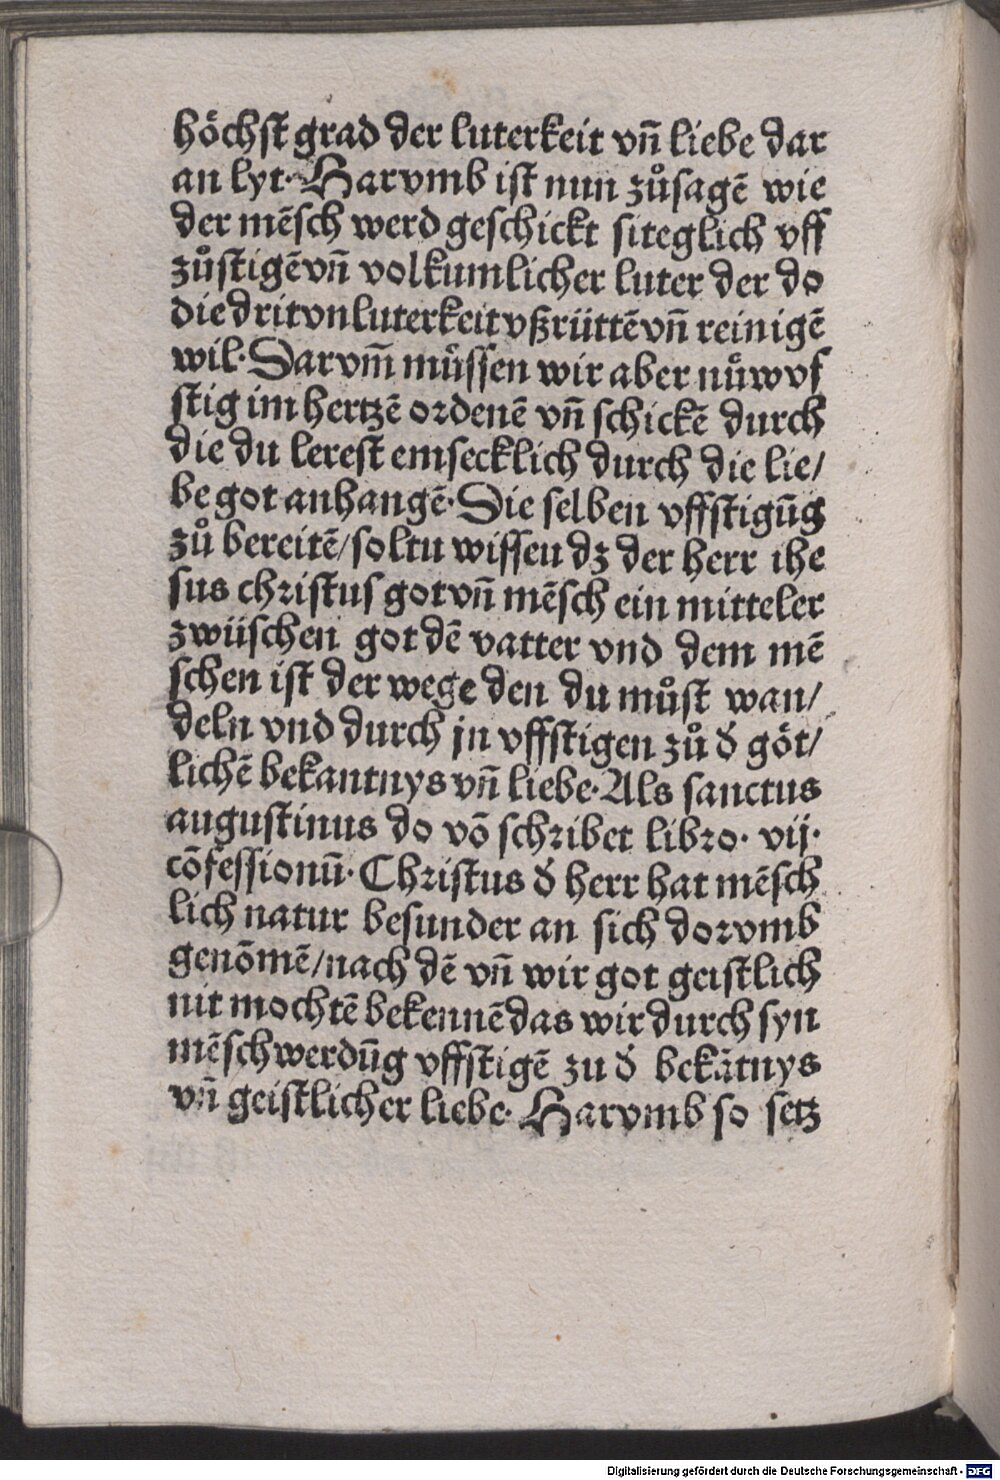 höchst grad der luterkeit vñ liebe dar
an lyt· Harvmb ist nun zůsagē wie
der mēsch werd geschickt siteglich vff
zůstigē vñ volkumlicher luter der do
die drit vnluterkeit vßrüttē vñ reinigē
wil· Darvm̄ müssen wir aber nůwvf
stig im hertzē ordenē vñ schickē durch
die du lerest emsecklich durch die lie/
be got anhangē· Die selben vffstigūg
zů bereitē/soltu wissen dz der herr ihe
sus christus got vñ mēsch ein mitteler
zwüschen got dē vatter vnd dem mē
schen ist der wege den du můst wan/
deln vnd durch jn vffstigen zů đ göt/
lichē bekantnys vñ liebe· Als sanctus
augustinus do vō schribet libro· vij·
cōfessionū· Christus đ herr hat mēsch
lich natur besunder an sich dorvmb
genōmē/nach dē vñ wir got geistlich
nit mochtē bekennē das wir durch syn
mēschwerdūg vffstigē zu đ bekātnys
vñ geistlicher liebe· Harvmb so setz
Digitalisierung gefördert durch die Deutsche Forschungsgemeinschaft - DFG